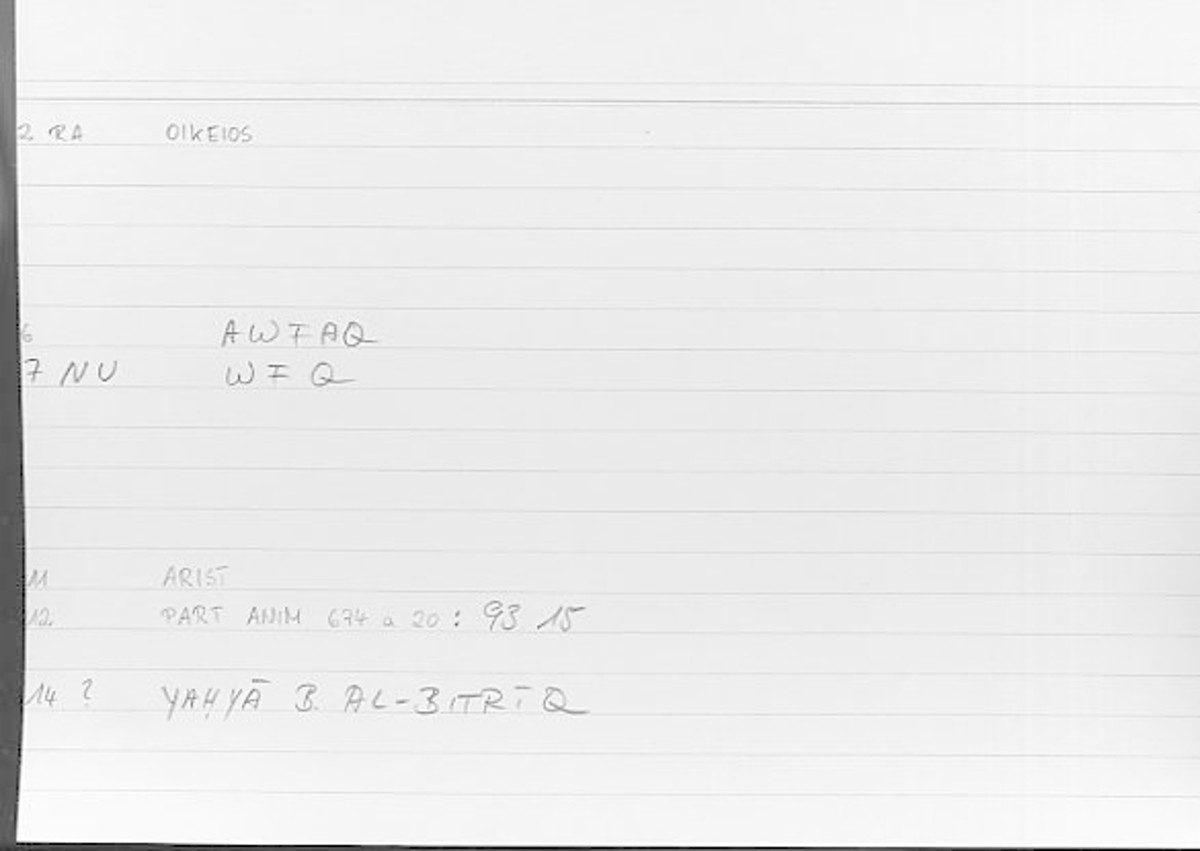 2 RA OIKEIOS
6 AWFAQ
7 NU WF Q
11 ARIST
12 PART ANIM 674 a 20 : 93 15
14 ? YAḤYĀ B. AL-BITRĪQ